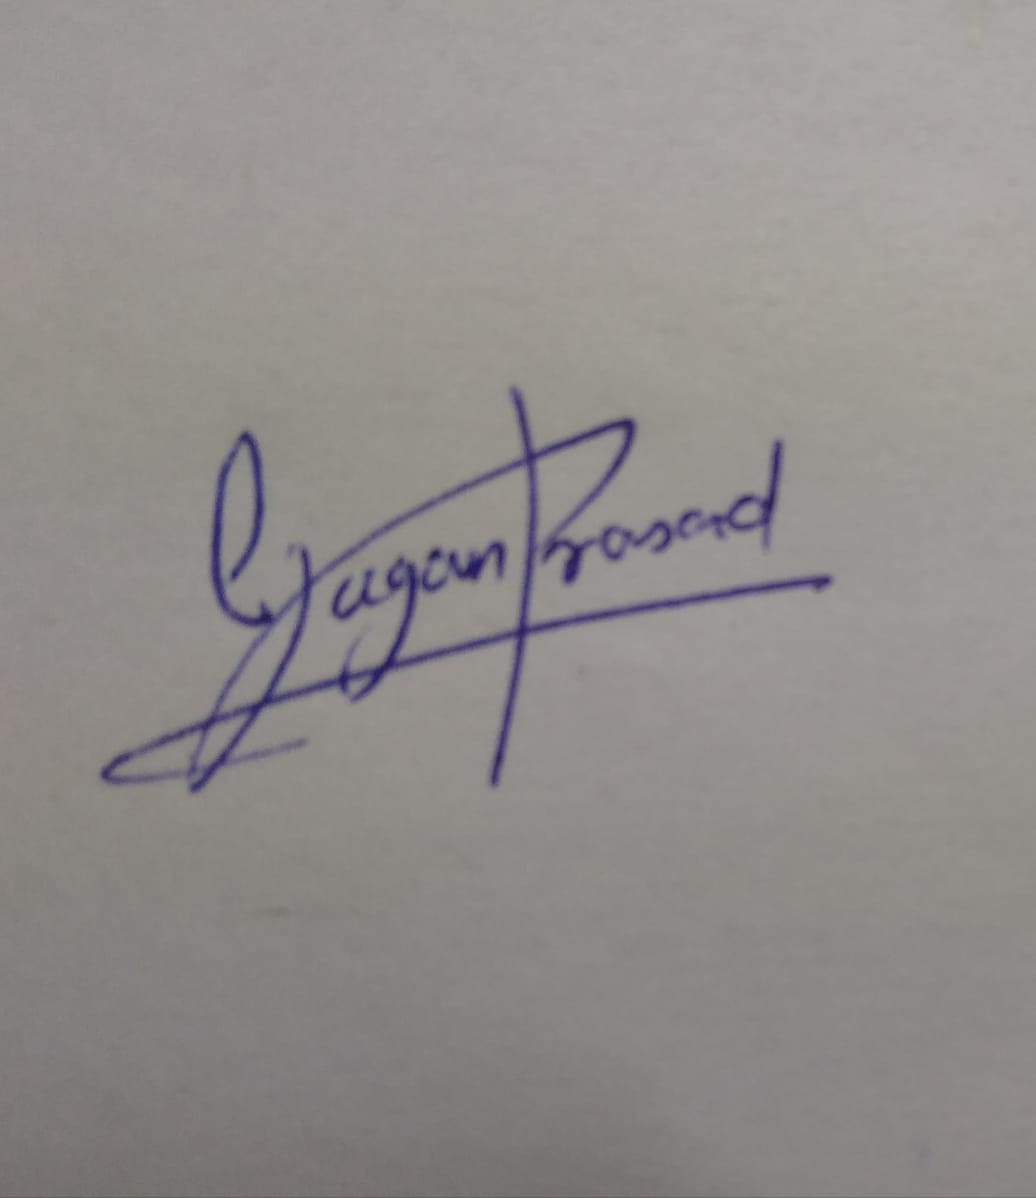 Gagan Prasad